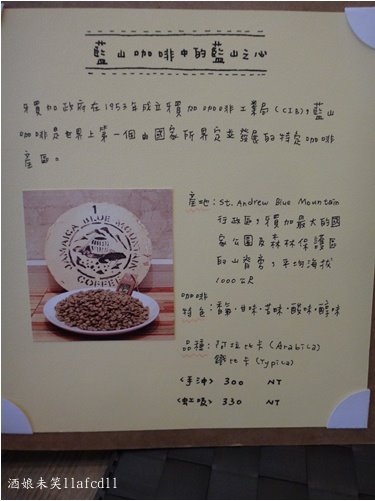 藍山咖啡中的藍山之心
牙買加政府在1953年成立牙買加咖啡工業局(CIB)，藍山
咖啡是世界上第一個由國家所界定並發展的特定咖啡
產區。
產地：St. Andrew Blue Mountain
行政區，牙買加最大的國
家公園及森林保護區
的山脊旁，平均海拔
1000公尺
咖啡
特色：香醇、甘味、苦味、酸味、醇味
品種：阿拉比卡(Arabica)
鐵比卡(Typica)
<手沖> 300 NT
<虹吸> 330 NT
1
JAMAICA BLUE MOUNTAIN
COFFEE
酒娘未笑llafcdll